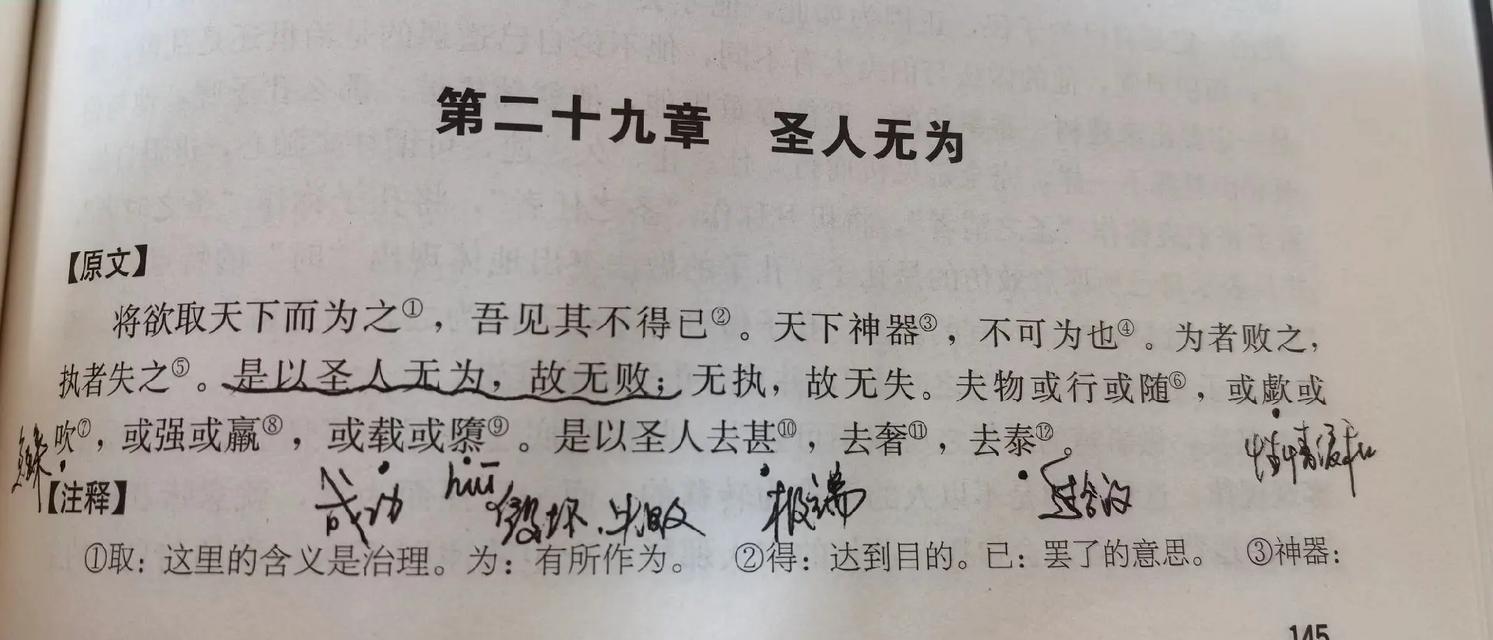 第二十九章 圣人无为
【原文】
将欲取天下而为之①，吾见其不得已②。天下神器③，不可为也④。为者败之，
执者失之⑤。是以圣人无为，故无败；无执，故无失。夫物或行或随⑥，或歔或
吹⑦，或强或羸⑧，或载或隳⑨。是以圣人去甚⑩，去奢⑪，去泰⑫。
成功 huī 毁坏、失败 极端 过分 性情缓和
【注释】
①取：这里的含义是治理。为：有所作为。 ②得：达到目的。已：罢了的意思。 ③神器：
145